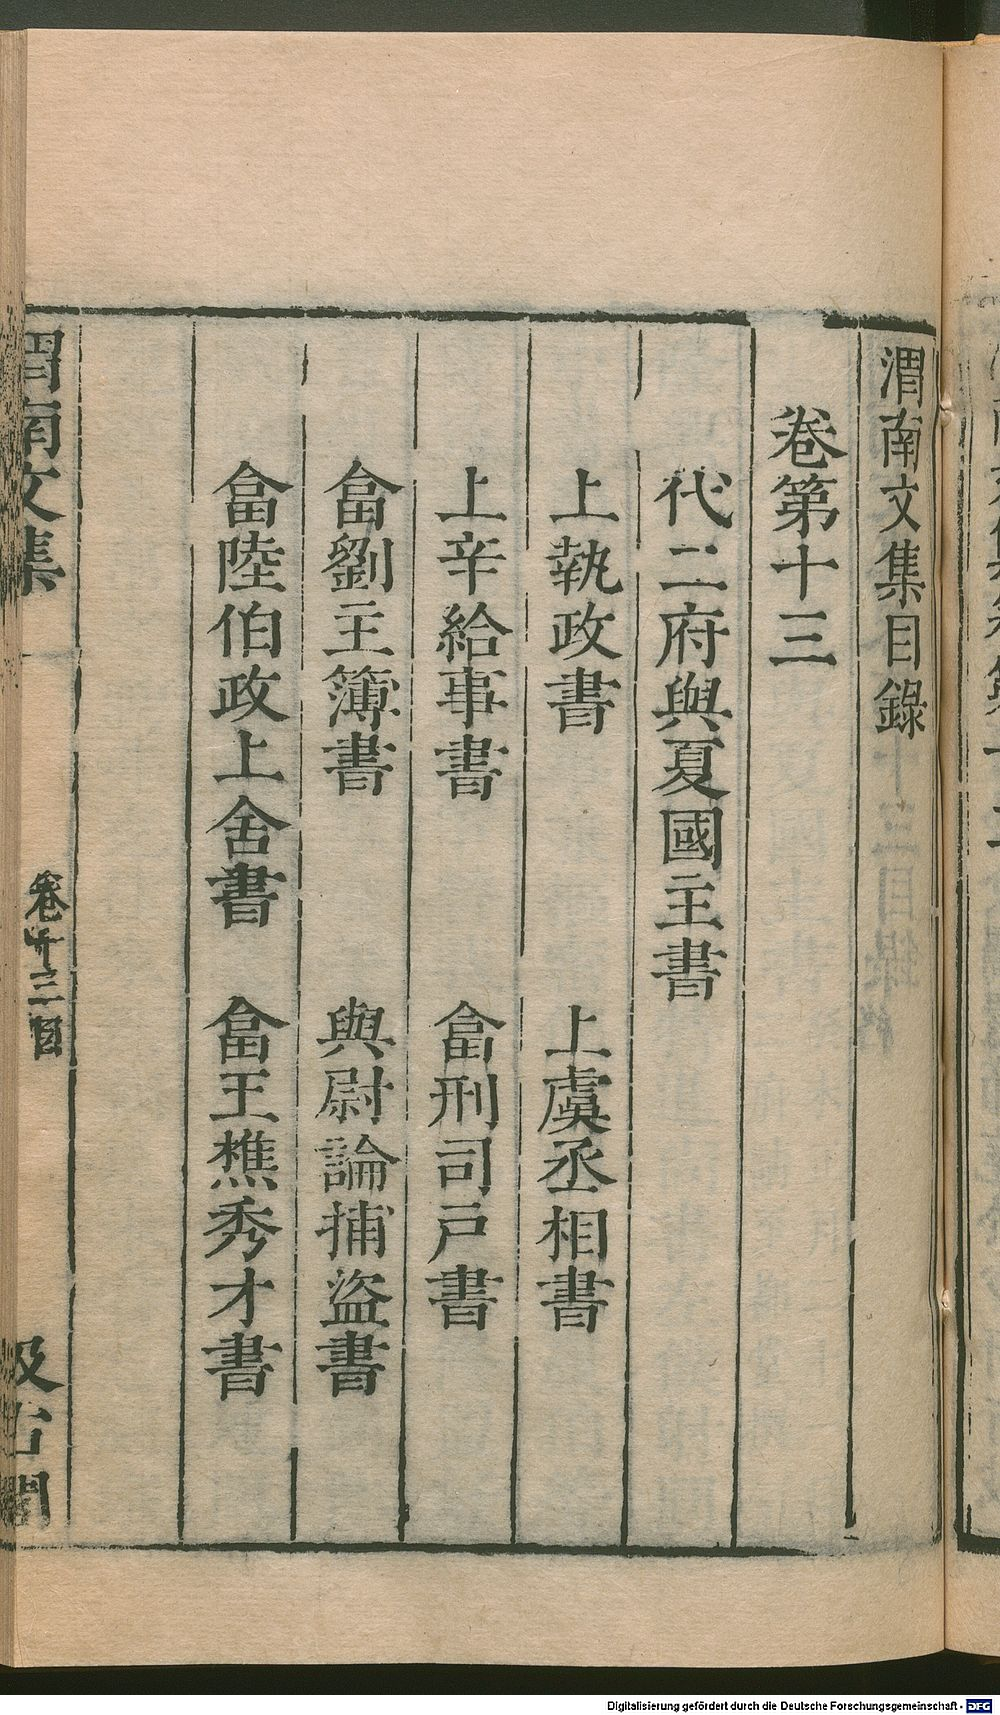 渭南文集目錄
卷第十三
代二府與夏國主書
上執政書
上虞丞相書
上辛給事書
畣刑司戶書
畣劉主簿書
與尉論捕盜書
畣陸伯政上舍書
畣王樵秀才書
渭南文集
卷十三目
汲古閣
Digitalisierung gefördert durch die Deutsche Forschungsgemeinschaft - DFG